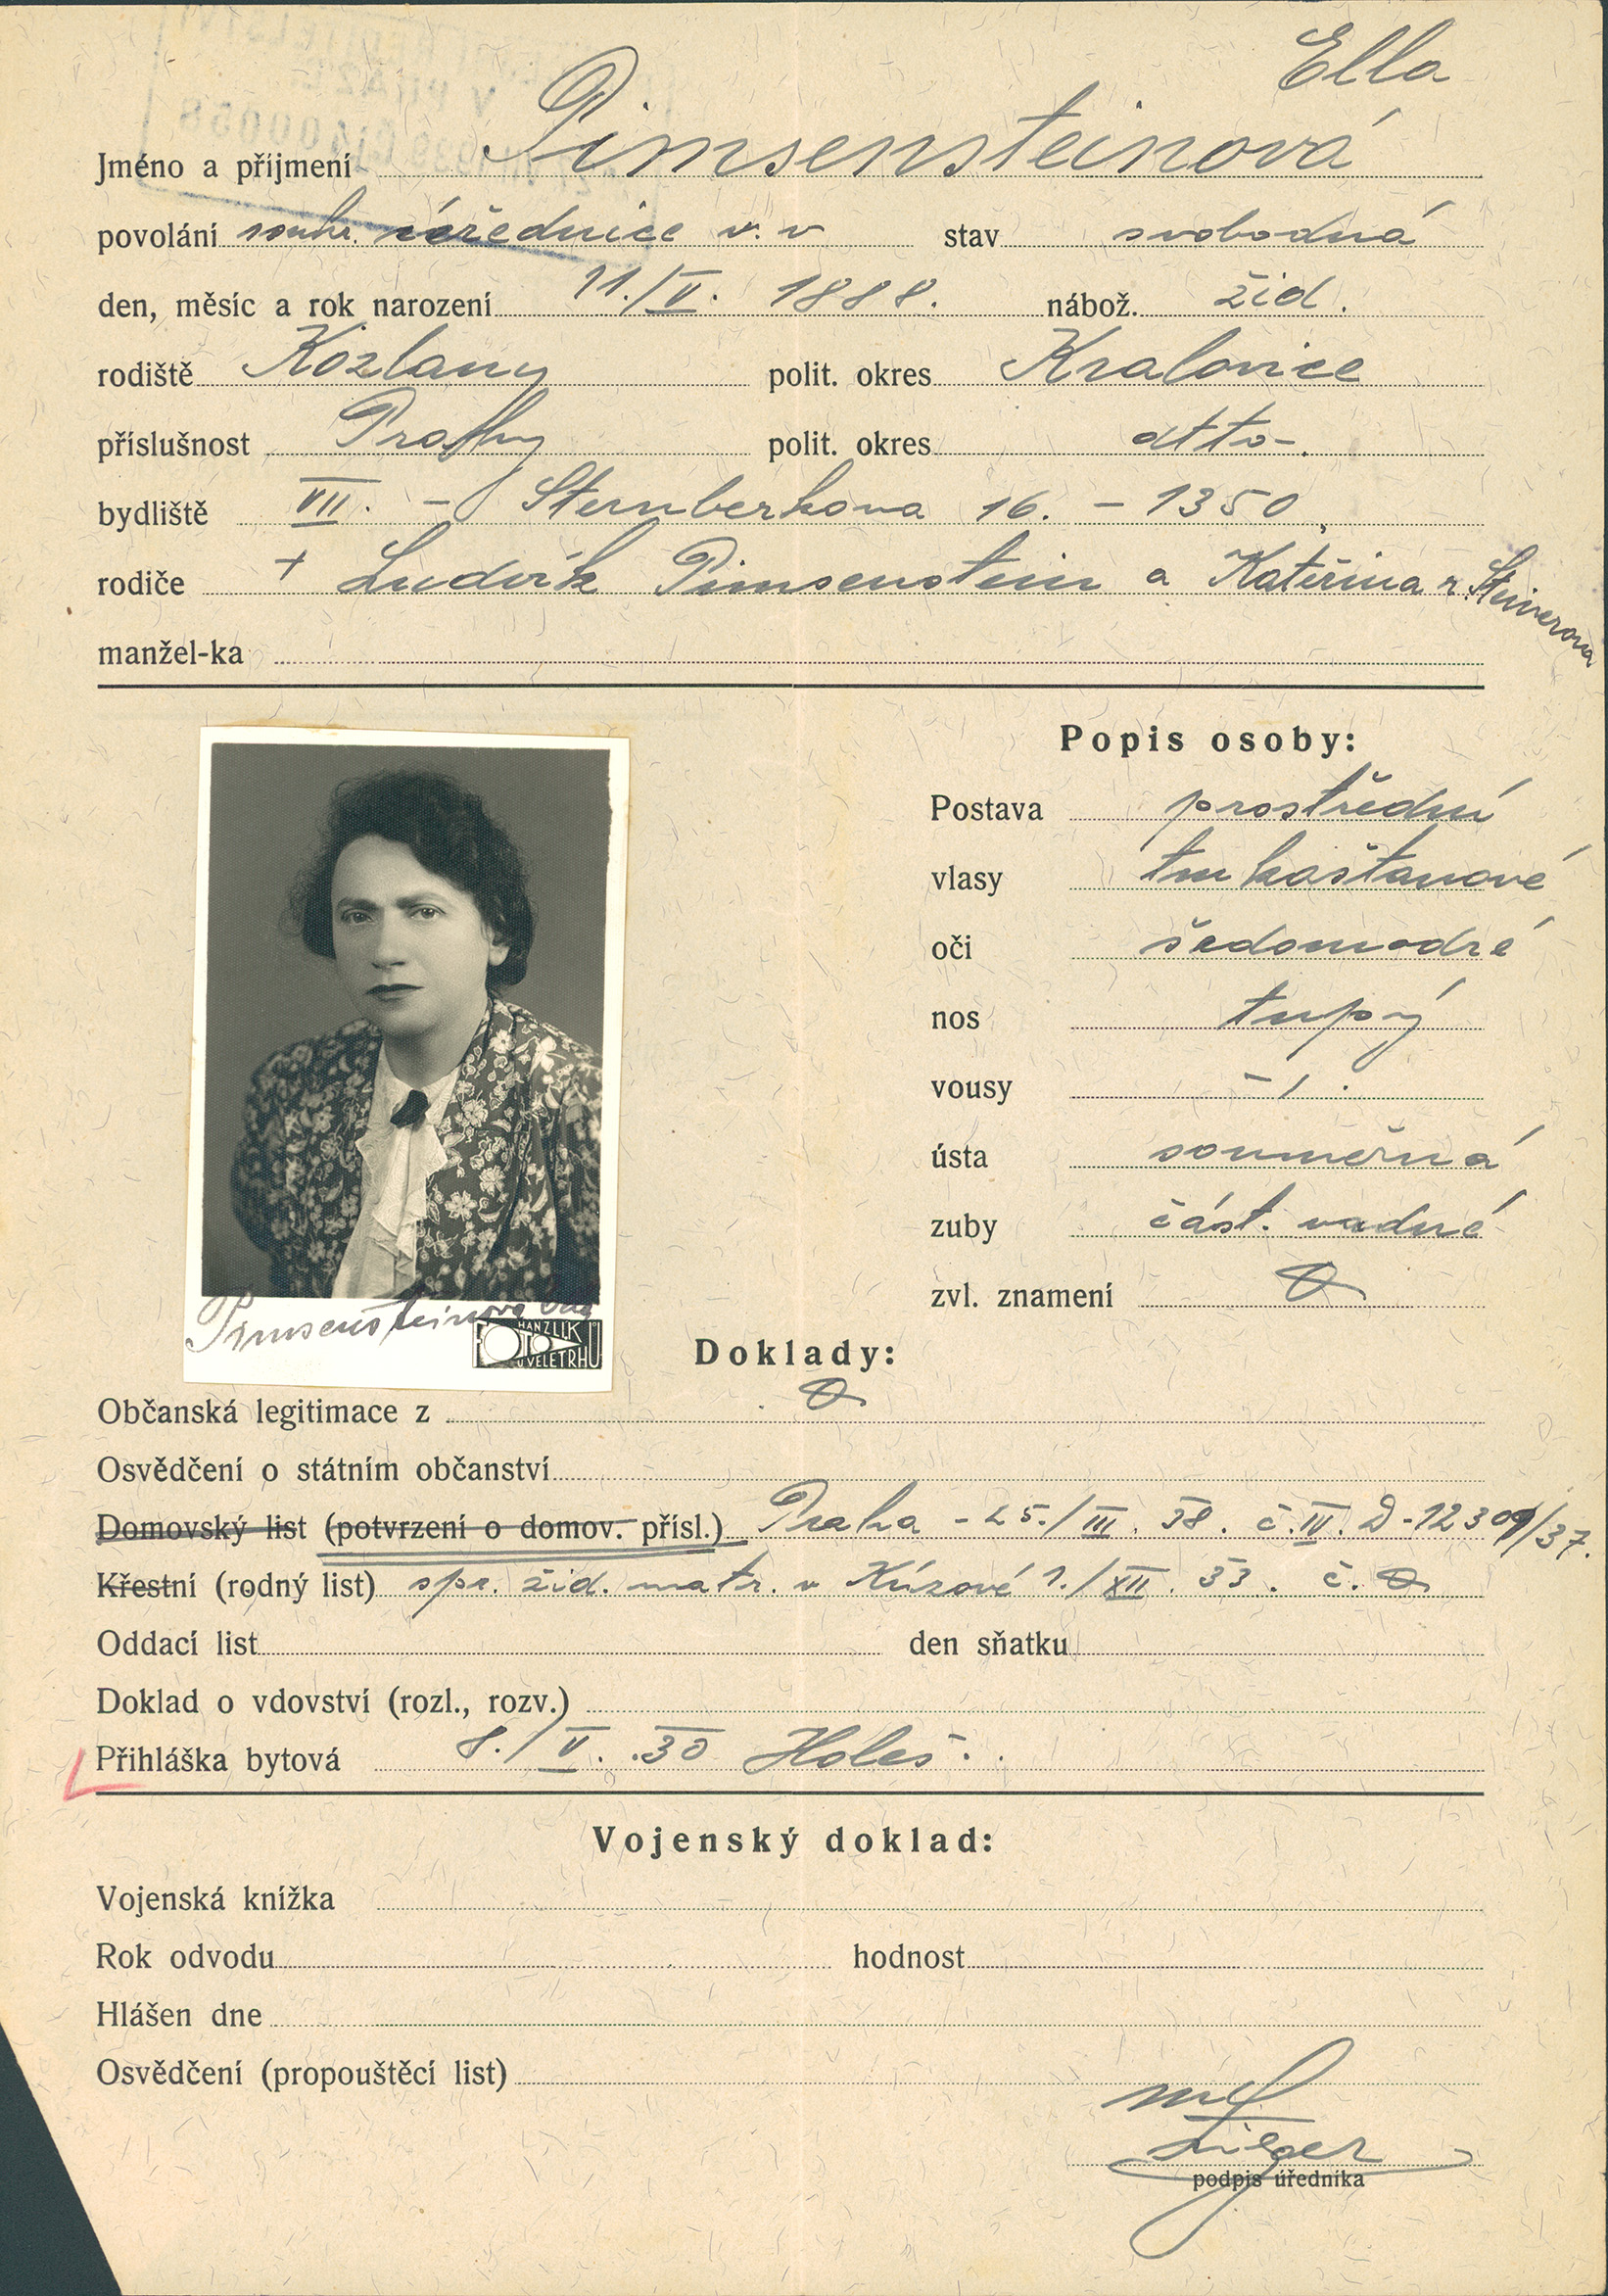 Ella
Jméno a příjmení Pimsensteinová
povolání soukr. úřednice v. v stav svobodná
den, měsíc a rok narození 11./V. 1888. nábož. žid.
rodiště Kozlany polit. okres Kralovice
příslušnost Prahy polit. okres dtto-.
bydliště VII. - Sternberkova 16. - 1350,
rodiče + Ludvík Pimsenstein a Kateřina r. Steinerova
manžel-ka
Popis osoby:
Postava prostřední
vlasy tm kaštanové
oči šedomodré
nos tupý
vousy - / .
ústa souměrná
zuby část. vadné
zvl. znamení
Pimsensteinova Ella
HANZLIK
FOTO
U VELETRHŮ
Doklady:
Občanská legitimace z
Osvědčení o státním občanství
Domovský list (potvrzení o domov. přísl.) Praha - 25./III. 38. č. IV. D-12309/37.
Křestní (rodný list) spr. žid. matr. v Kúzové 1./XII. 33. č.
Oddací list den sňatku
Doklad o vdovství (rozl., rozv.)
Přihláška bytová 8./V. .30 Holeš.
Vojenský doklad:
Vojenská knížka
Rok odvodu hodnost
Hlášen dne
Osvědčení (propouštěcí list)
podpis úředníka